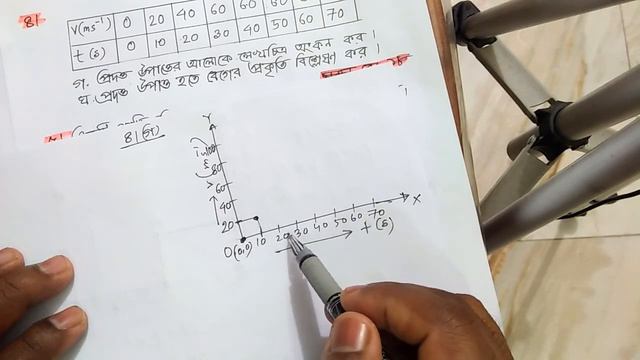 8।
V(ms⁻¹) 0 20 40 60 60 60
t (s) 0 10 20 30 40 50 60 70
গ. প্রদত্ত উপাত্তের আলোকে লেখচিত্র অংকন কর।
ঘ. প্রদত্ত উপাত্ত হতে বেগের প্রকৃতি বিশ্লেষণ কর।
8।(গ)
Y
80
60
40
20
O(0,0) 10 20 30 40 50 60 70 X
t (s)